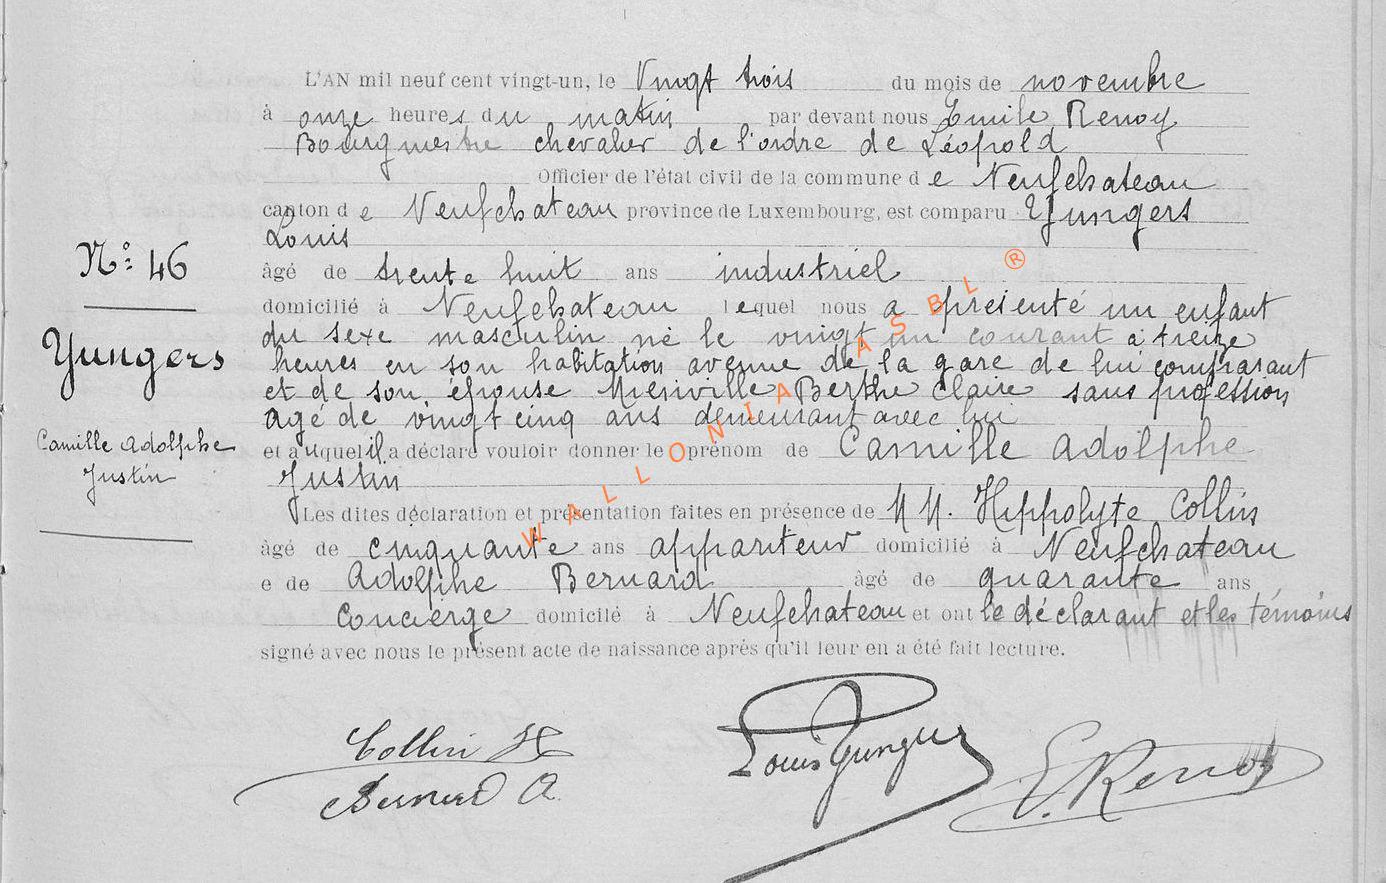 L'AN mil neuf cent vingt-un, le Vingt trois du mois de novembre
à onze heures du matin par devant nous Emile Renoy
Bourgmestre chevalier de l'ordre de Léopold
Officier de l'état civil de la commune de Neufchateau
canton de Neufchateau province de Luxembourg, est comparu Yungers
Louis
N° 46
âgé de trente huit ans industriel
domicilié à Neufchateau lequel nous a présenté un enfant
du sexe masculin né le vingt un courant à treize
Yungers
heures en son habitation avenue de la gare de lui comparant
et de son épouse Berthe Claire sans profession
agé de vingt cinq ans demeurant avec lui
Camille Adolphe
Justin
et auquel il a déclaré vouloir donner le prénom de Camille Adolphe
Justin
Les dites déclaration et présentation faites en présence de MM. Hippolyte Collin
âgé de cinquante ans appariteur domicilié à Neufchateau
e de Adolphe Bernard âgé de quarante ans
Concierge domicilé à Neufchateau et ont le déclarant et les témoins
signé avec nous le présent acte de naissance après qu'il leur en a été fait lecture.
Collin H
Bernard A.
Louis Yungers
E. Renoy
WALLONIA ASBL ®